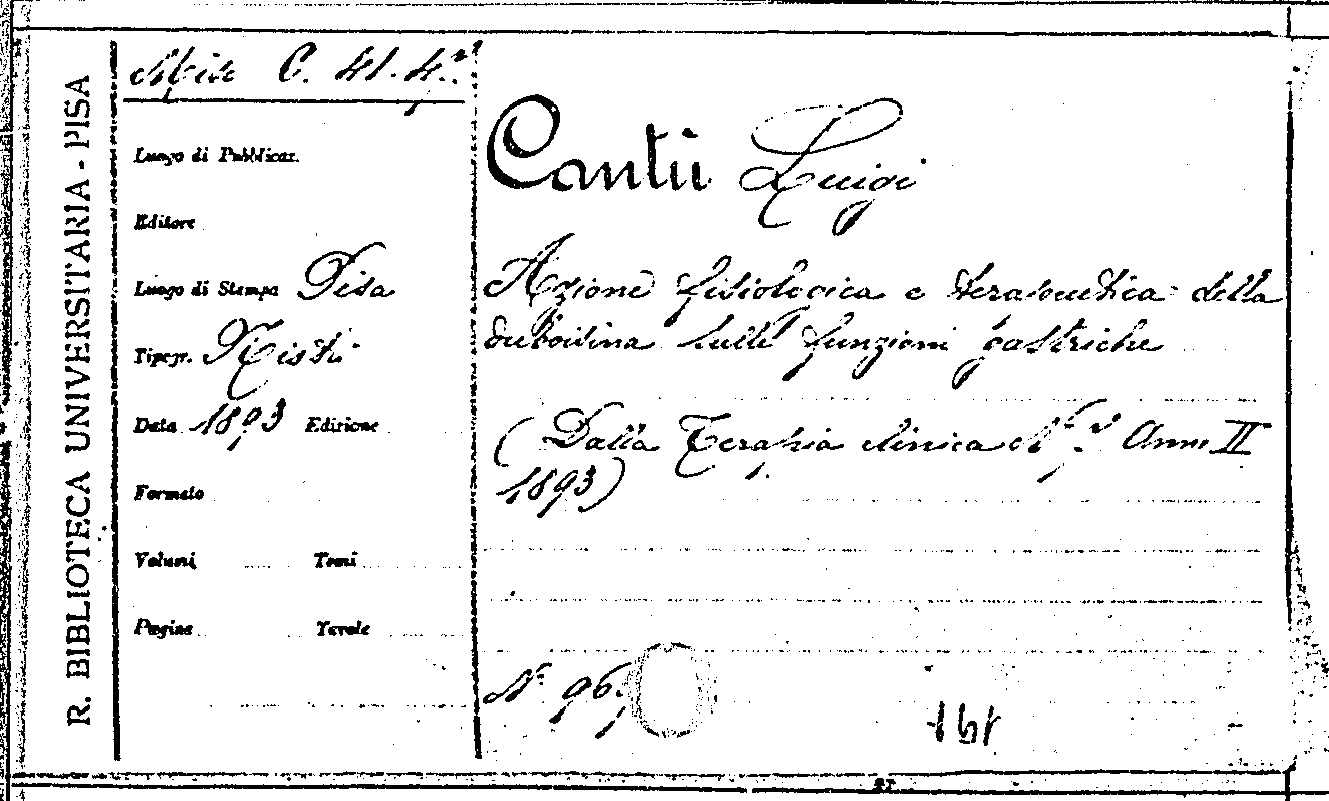 R. BIBLIOTECA UNIVERSITARIA - PISA
Misc C. 41. 4.
Luogo di Pubblicaz.
Editore
Luogo di Stampa Pisa
Tipogr. Nistri
Data 1893 Edizione
Formato
Volumi Tomi
Pagine Tavole
Cantù Luigi
Azione fisiologica e terapeutica della
duboisina sulle funzioni gastriche
(Dalla Terapia clinica Anno II
1893)